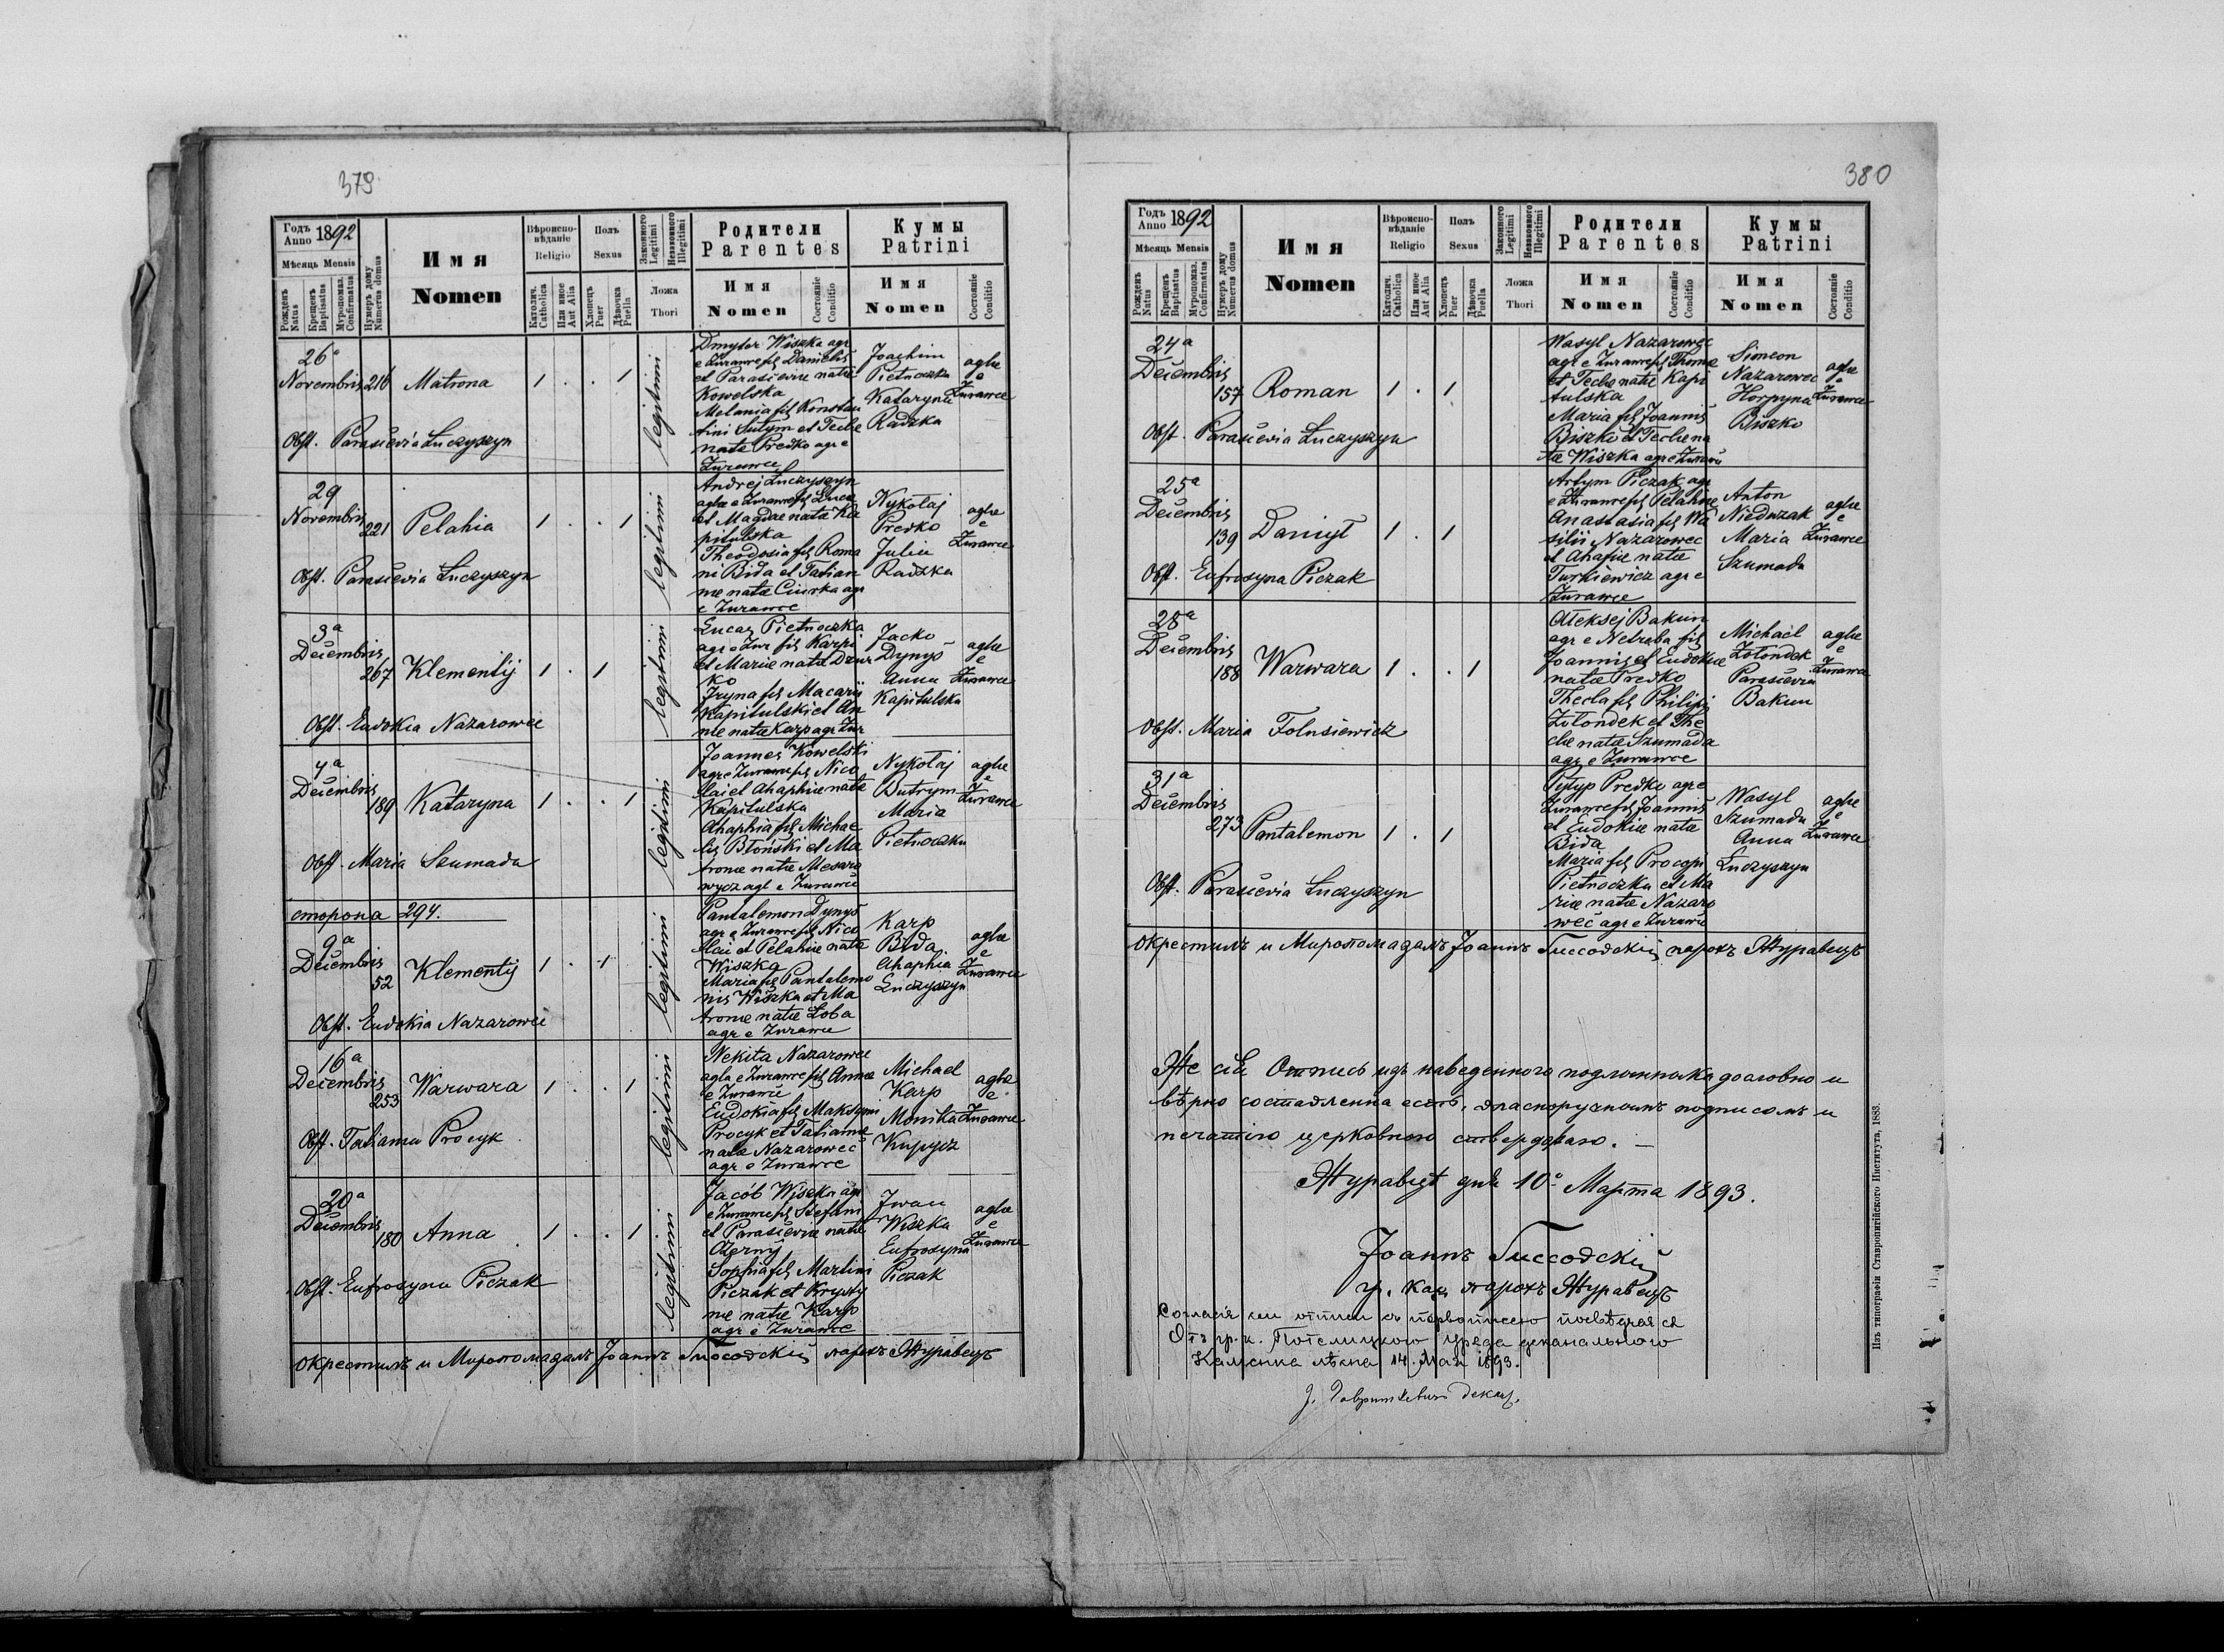 379
Годъ Anno 1892
Мѣсяць Mensis
Рожденъ Natus
Крещенъ Baptisatus
Муропомаз. Confirmatus
Нумеръ дому Numerus domus
Имя Nomen
Вѣроисповѣданіе Religio
Католич. Catholica
Или иное Aut Alia
Полъ Sexus
Хлопець Puer
Дѣвочка Puella
Законного Legitimi
Незаконного Illegitimi
Ложа Thori
Родители Parentes
Имя Nomen
Состояніе Conditio
Кумы Patrini
Имя Nomen
Состояніе Conditio
26a
Novembris 216 Matrona 1 . . 1 legitimi
Obst. Parascevia Łuczyszyn
Dmyter Wiszka agr
e Żurawce fil Danielis
et Parasceviæ natæ
Kowelska
Melania fil Konstan
tini Sutym et Teclæ
natæ Predko agr e
Żurawce
Joachim
Pietnoczka
Kataryna
Radzka
aglæ
e
Żurawce
29
Novembris 221 Pelahia 1 . . 1 legitimi
Obst. Parascevia Łuczyszyn
Andrej Łuczyszyn
aglæ e Żurawce fil Lucæ
et Magdæ natæ Ka
pitulska
Theodosia fil Roma
ni Bida et Tatian
næ natæ Ciurka agr
e Żurawce
Nykołaj
Predko
Julia
Radzka
aglæ
e
Żurawce
3a
Decembris 267 Klementij 1 . 1 legitimi
Obst. Eudokia Nazarowec
Lucas Pietnoczka
agr e Żur fil Karpi
et Mariæ natæ Dzur
ko
Iryna fil Macarii
Kapitulski et An
næ natæ Karp agr Żur
Jacko
Dynyś
Anna
Kapitulska
aglæ
e
Żurawce
4a
Decembris 189 Kataryna 1 . . 1 legitimi
Obst. Maria Szumada
Joannes Kowelski
agr e Żurawce fil Nico
lai et Ahaphiæ natæ
Kapitulska
Ahaphia fil Michae
lis Błoński et Ma
tronæ natæ Mesaro
wycz agl e Żurawce
Nykołaj
Butrym
Maria
Pietnoczka
aglæ
e
Żurawce
сторона 294.
9a
Decembris 52 Klementij 1 . 1 legitimi
Obst. Eudokia Nazarowec
Pantalemon Dynyś
agr e Żurawce fil Nico
lai et Pelahiæ natæ
Wiszka
Maria fil Pantalemo
nis Wiszka et Ma
tronæ natæ Łoba
agr e Żurawce
Karp
Bida
Ahaphia
Łuczyszyn
aglæ
e
Żurawce
16a
Decembris 253 Warwara 1 . . 1 legitimi
Obst. Tatianna Procyk
Nekita Nazarowec
agla e Żurawce fil Annæ
e Żurawce
Eudokia fil Maksymi
Procyk et Tatianæ
natæ Nazarowec
agr e Żurawce
Michael
Karp
Monika
Kupycz
aglæ
e
Żurawce
20a
Decembris 180 Anna 1 . . 1 legitimi
Obst. Eufrosyna Piczak
Jacób Wiszka agr
e Żurawce fil Stefani
et Parasceviæ natæ
Czerny
Sophia fil Martini
Piczak et Krysty
næ natæ Karp
agr e Żurawce
Iwan
Wiszka
Eufrosyna
Piczak
aglæ
e
Żurawce
окрестилъ и Миропомазалъ Іоаннъ парохъ Журавецъ
380
Годъ Anno 1892
Мѣсяць Mensis
Рожденъ Natus
Крещенъ Baptisatus
Муропомаз. Confirmatus
Нумеръ дому Numerus domus
Имя Nomen
Вѣроисповѣданіе Religio
Католич. Catholica
Или иное Aut Alia
Полъ Sexus
Хлопець Puer
Дѣвочка Puella
Законного Legitimi
Незаконного Illegitimi
Ложа Thori
Родители Parentes
Имя Nomen
Состояніе Conditio
Кумы Patrini
Имя Nomen
Состояніе Conditio
24a
Decembris 157 Roman 1 . 1
Obst. Parascevia Łuczyszyn
Wasyl Nazarowec
agr e Żurawce fil Thomæ
et Teclæ natæ Kapi
tulska
Maria fil Joannis
Biszko et Teclæ na
tæ Wiszka agr e Żurawce
Simeon
Nazarowec
Horpyna
Biszko
aglæ
e
Żurawce
25a
Decembris 139 Danyił 1 . 1
Obst. Eufrosyna Piczak
Artym Piczak agr
e Żurawce fil Pelahiæ
Anastasia fil Wa
silii Nazarowec
et Ahafiæ natæ
Turkiewicz agr e
Żurawce
Anton
Niedużak
Maria
Szumada
aglæ
e
Żurawce
28a
Decembris 188 Warwara 1 . . 1
Obst. Maria Folusiewicz
Aleksej Bakun
agr e Netreba fil
Joannis et Eudokiæ
natæ Predko
Thecla fil Philipi
Żołondek et The
clæ natæ Szumada
agr e Żurawce
Michael
Żołondek
Parascevia
Bakun
aglæ
e
Żurawce
31a
Decembris 273 Pantalemon 1 . 1
Obst. Parascevia Łuczyszyn
Pyłyp Predko agr e
Żurawce fil Joannis
et Eudokiæ natæ
Bida
Maria fil Procopi
Pietnoczka et Ma
riæ natæ Nazaro
wec agr e Żurawce
Wasyl
Szumada
Anna
Łuczyszyn
aglæ
e
Żurawce
окрестилъ и Миропомазалъ Іоаннъ парохъ Журавецъ
Же сія Отпись изъ наведенного подлинника дословно и
вѣрно составленна есть, власноручнымъ подписомъ и
печатію церковною ствердждаю. —
Журавцѣ дня 10о Марта 1893.
Іоаннъ
гр. кат. парохъ Журавецъ
Отъ гр. к. Потелицкого уряда деканального
14. Мая 1893.
декан.
Изъ типографіи Ставропигійского Института, 1883.